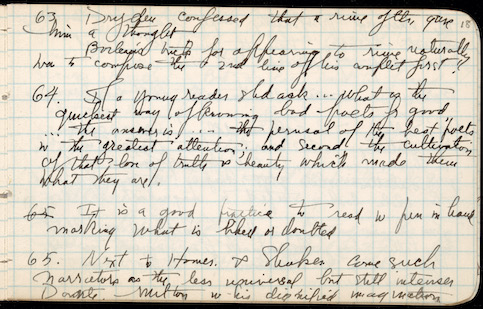 63. Dryden confessed that a rime often gave 18
him a thought
Boileau's trick for appearing to rime naturally
was to compose the 2nd line of his couplet first!
64. If a young reader shd ask... what is the
quickest way of knowing bad poets fr good
... the answer is ... the perusal of the best poets
w the greatest attention. and second the cultivation
of that love of truth & beauty which made them
what they are.
65 It is a good practice to read w pen in hand
marking what is liked or doubted
65. Next to Homer & Shakes come such
narrators as the less universal but still intenser
Dante. Milton w his dignified imagination